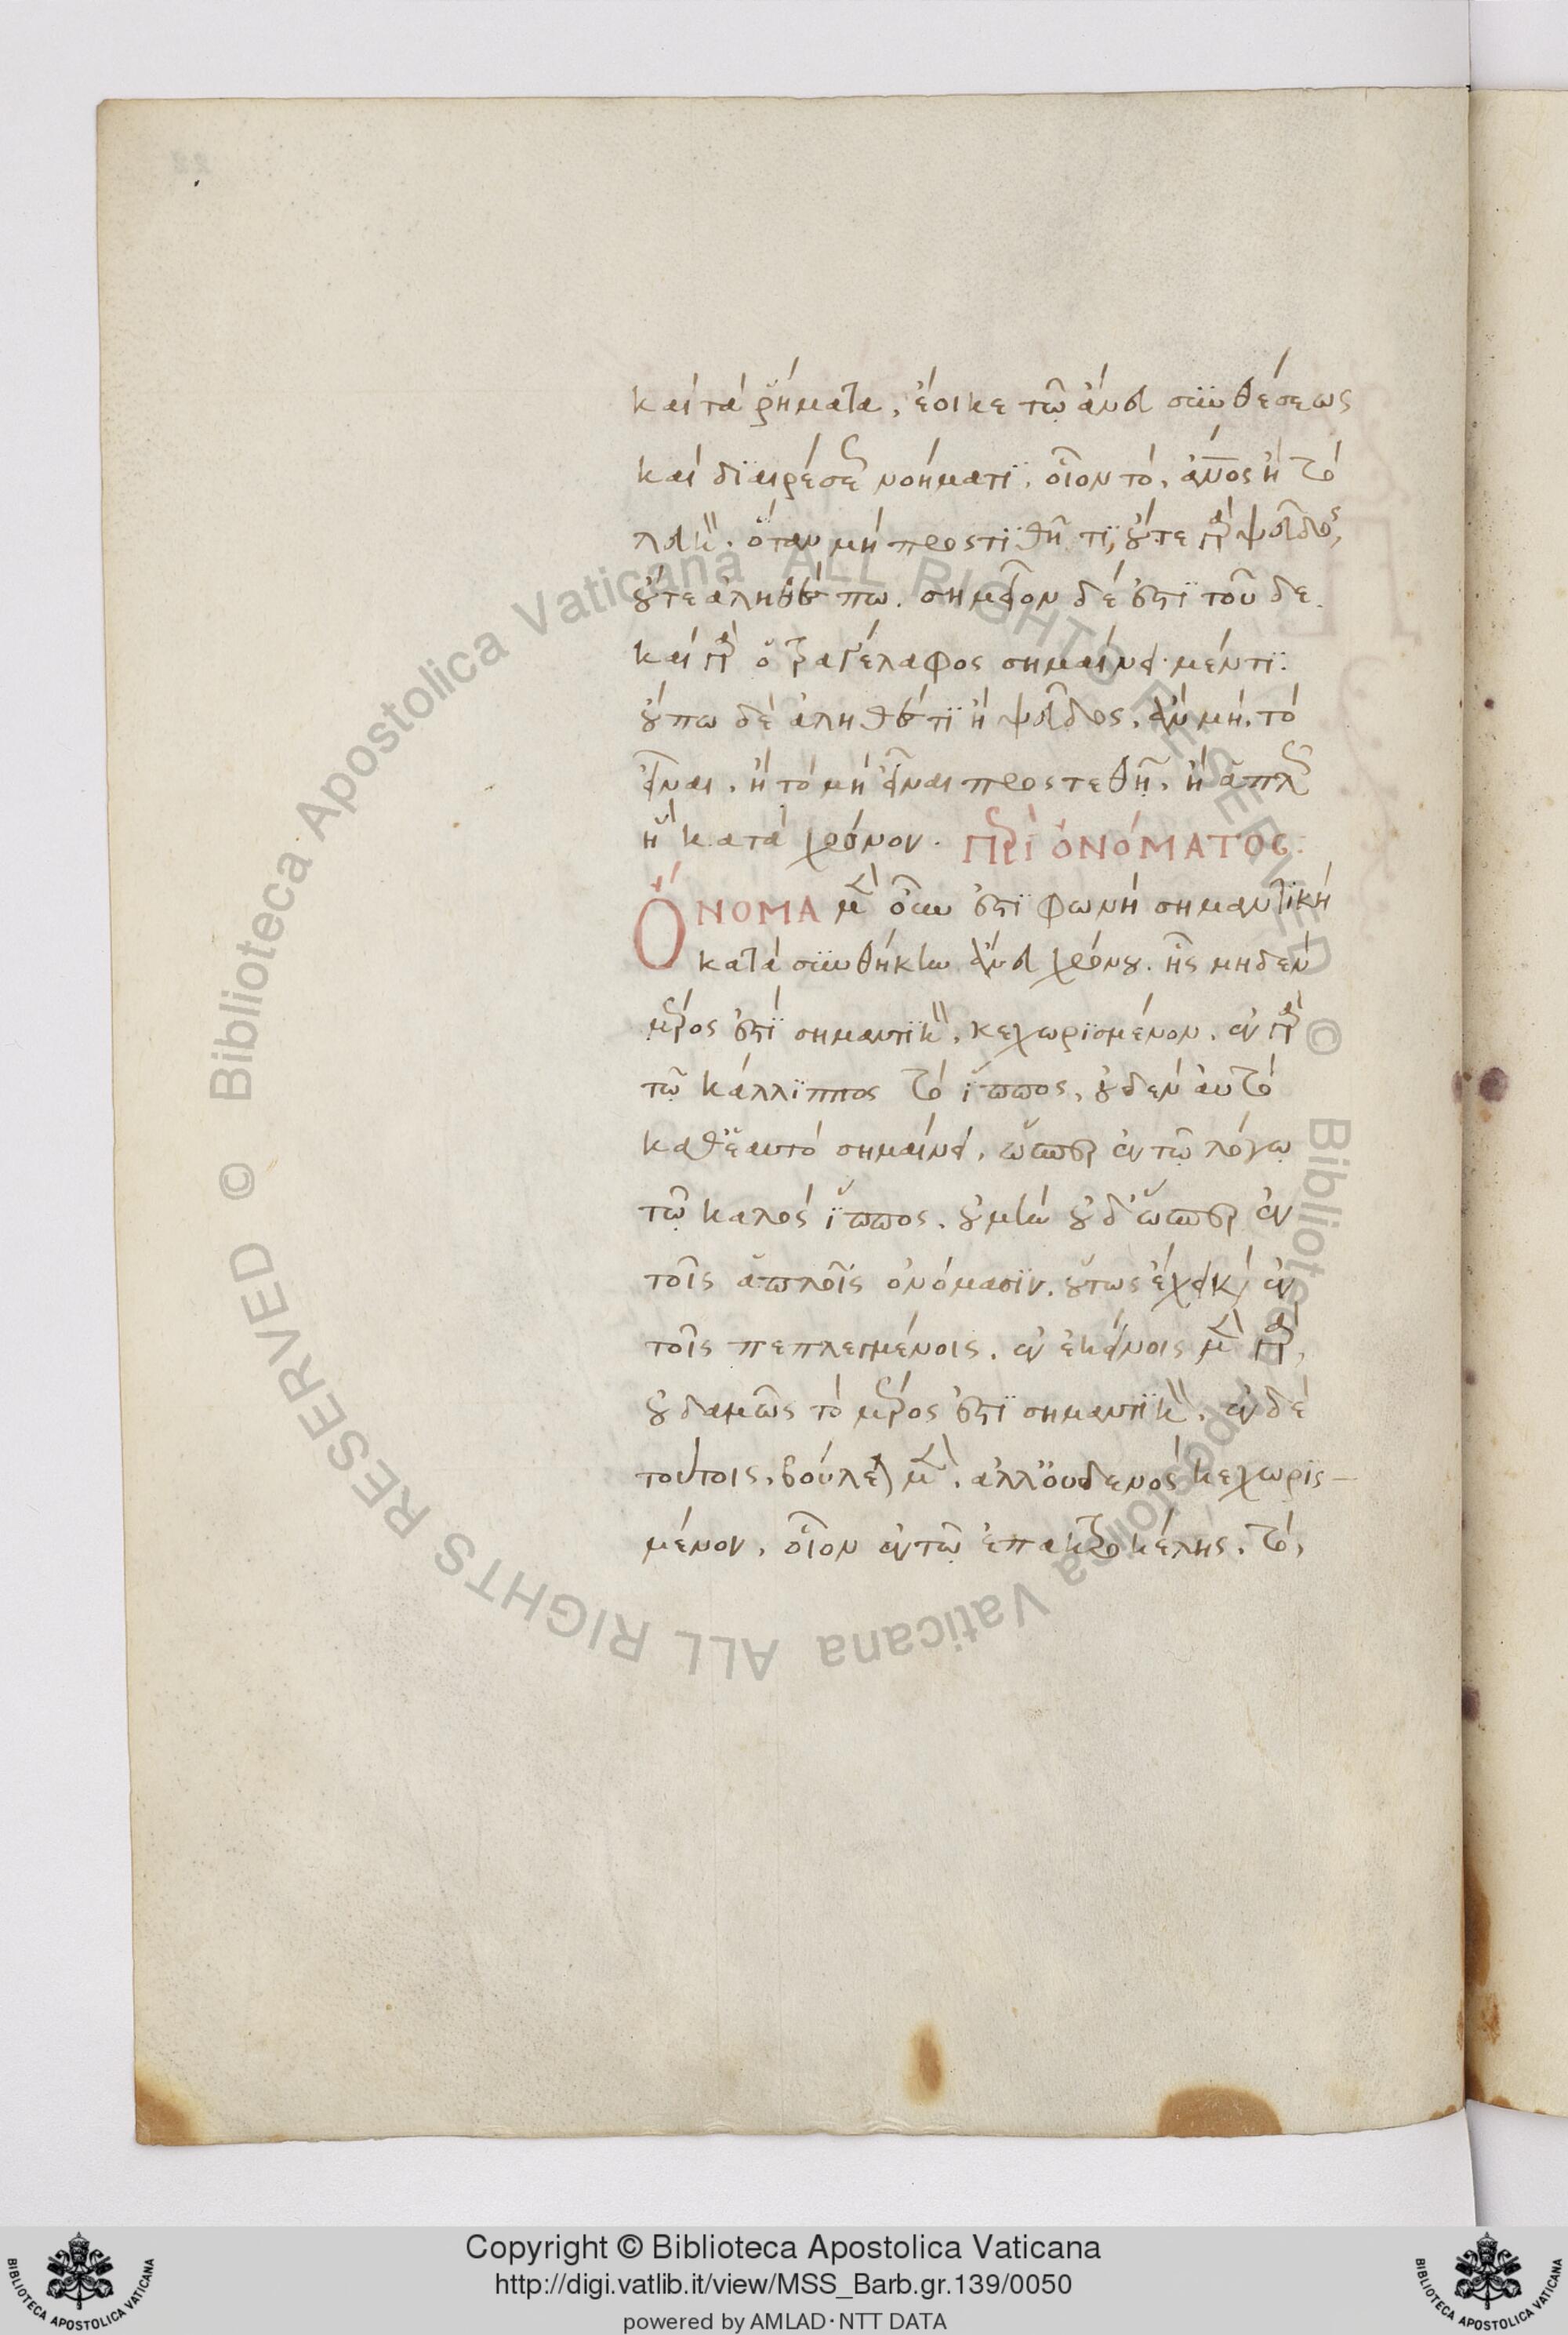 καὶ τὰ ῥήματα, ἔοικε τῷ ἄνευ συνθέσεως
καὶ διαιρέσεως νοήματι. οἷον τό, ἄνος ἢ τὸ
λευκ. ὅταν μὴ προστιθῇ τι, οὔτε γὰρ ψεῦδος,
οὔτε ἀληθές πω. σημεῖον δέ ἐστι τοῦ δε.
καὶ γὰρ ὁ τραγέλαφος σημαίνει μέν τι.
οὔπω δὲ ἀληθές τι ἢ ψεῦδος. ἐὰν μὴ. τὸ
εἶναι. ἢ τὸ μὴ εἶναι προστεθῇ. ἢ ἁπλῶς
ἢ κατὰ χρόνον. Περὶ ὀνόματος:
Ὄνομα μὲν οὖν ἐστι φωνὴ σημαντικὴ
κατὰ συνθήκην ἄνευ χρόνου. ἧς μηδὲν
μέρος ἐστὶ σημαντικ. κεχωρισμένον. ἐν γὰρ
τῷ κάλλιππος τὸ ἵππος, οὐδὲν αὐτὸ
καθ ἑαυτὸ σημαίνει. ὥσπερ ἐν τῷ λόγῳ
τῷ καλὸς ἵππος. οὐ μὴν οὐδ ὥσπερ ἐν
τοῖς ἁπλοῖς ὀνόμασιν. οὕτως ἔχει κ ἐν
τοῖς πεπλεγμένοις. ἐν ἐκείνοις μὲν γὰρ,
οὐδαμῶς τὸ μέρος ἐστὶ σημαντικ. ἐν δὲ
τούτοις, βούλεται μὲν. ἀλλ οὐδενὸς κεχωρις-
μένον. οἷον ἐν τῷ ἐπακτροκέλης. τό,
Copyright © Biblioteca Apostolica Vaticana
http://digi.vatlib.it/view/MSS_Barb.gr.139/0050
powered by AMLAD·NTT DATA
© Biblioteca Apostolica Vaticana ALL RIGHTS RESERVED
© Biblioteca Apostolica Vaticana ALL RIGHTS RESERVED
BIBLIOTECA APOSTOLICA VATICANA
BIBLIOTECA APOSTOLICA VATICANA